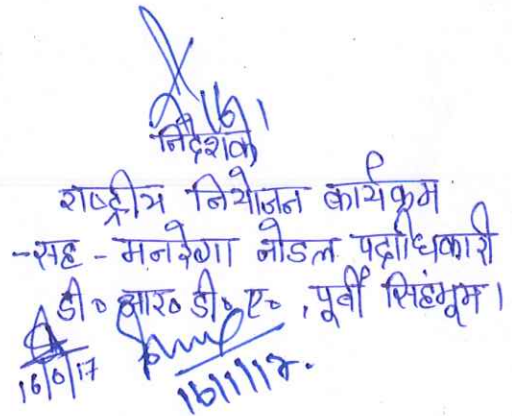 निदेशक
राष्ट्रीय नियोजन कार्यक्रम
-सह - मनरेगा नोडल पदाधिकारी
डी० आर० डी० ए०, पूर्वी सिहंभूम।
16/1/17.